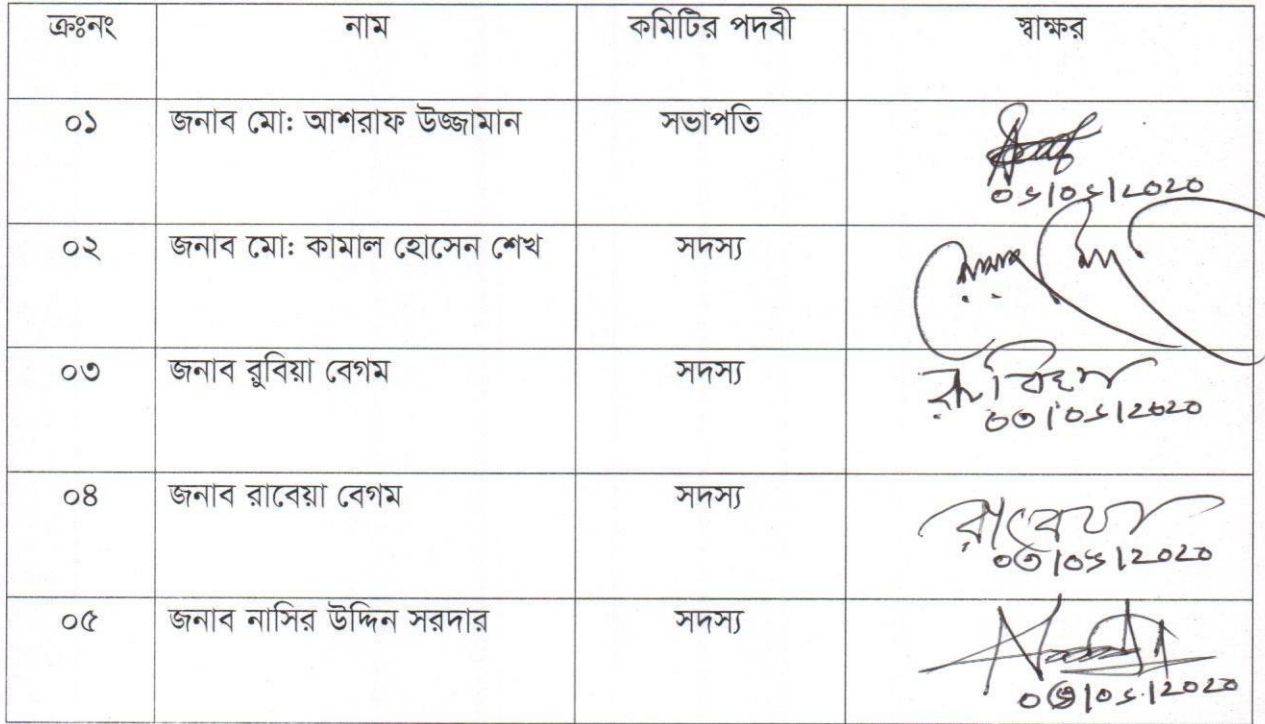 ক্রঃনং নাম কমিটির পদবী স্বাক্ষর
০১ জনাব মো: আশরাফ উজ্জামান সভাপতি
০২ জনাব মো: কামাল হোসেন শেখ সদস্য
০৩ জনাব রুবিয়া বেগম সদস্য রুবিয়া
০৩/০১/২০২০
০৪ জনাব রাবেয়া বেগম সদস্য রাবেয়া
০৩/০১/২০২০
০৫ জনাব নাসির উদ্দিন সরদার সদস্য